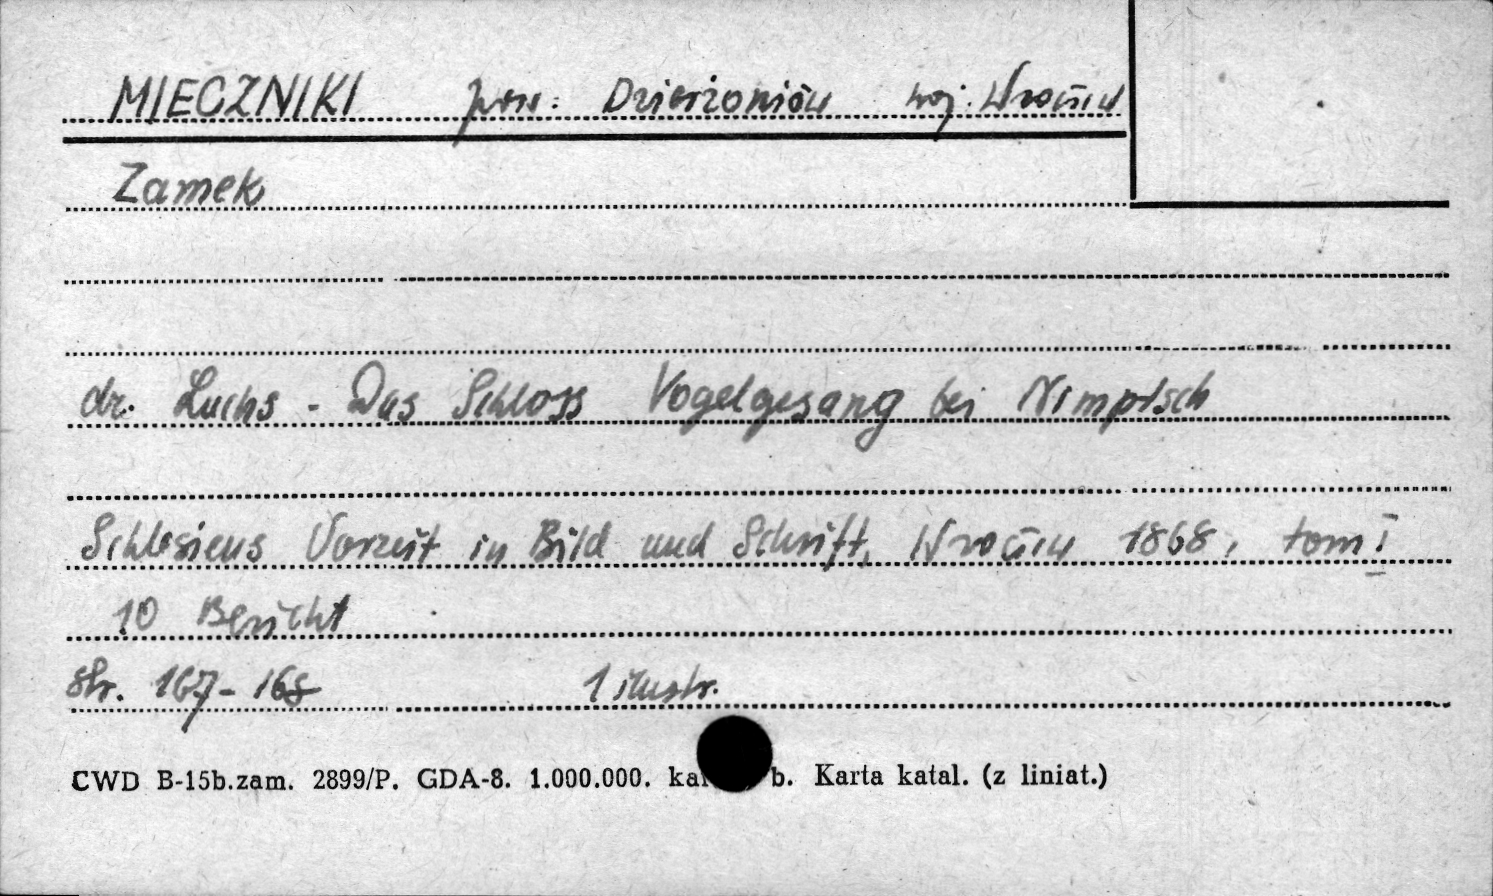 MIECZNIKI pow: Dzierżoniów woj. Wrocław
Zamek
dr. Luchs - Das Schloss Vogelgesang bei Nimptsch
Schlesiens Vorzeit in Bild und Schrift, Wrocław 1868, tom I
10 Bericht
str. 167-168 1 ilustr.
CWD B-15b.zam. 2899/P. GDA-8. 1.000.000. b. Karta katal. (z liniat.)